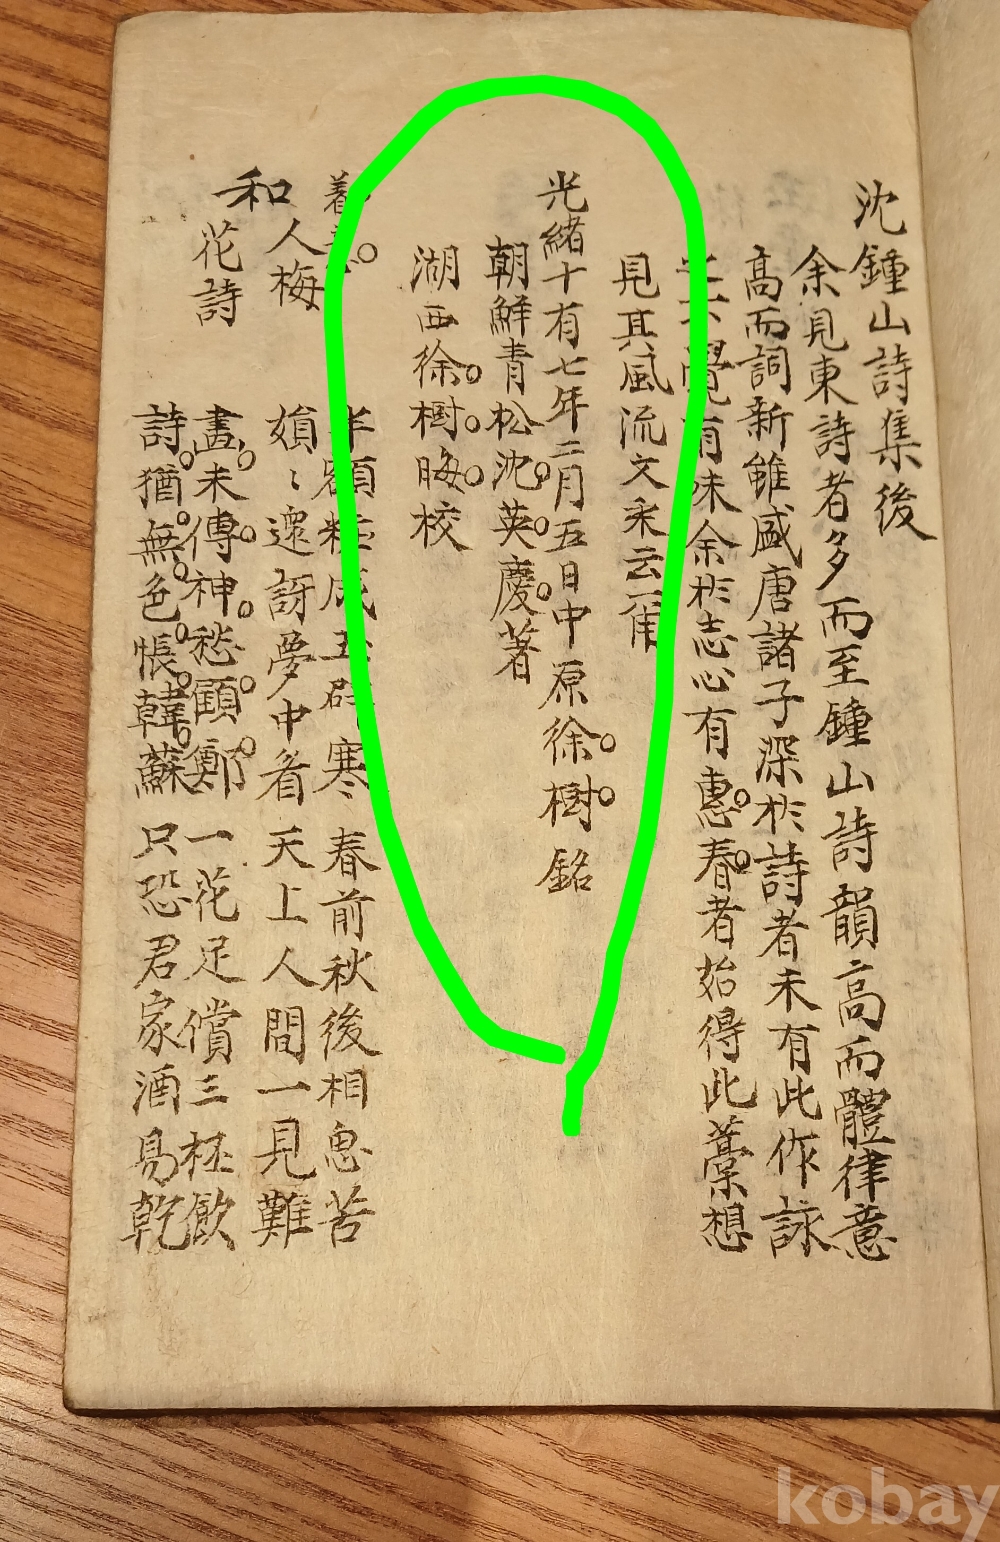 沈鍾山詩集後
余見東詩者多而至鍾山詩韻高而體律意
高而詞新雖盛唐諸子深於詩者未有此作詠
覺有味余於志心有惠春者始得此藁想
見其風流文采云爾
光緒十有七年二月五日中原徐樹銘
朝鮮青松沈英慶著
湖西徐樹晦校
和人梅
花詩
半額粧成玉辟寒 春前秋後相思苦
嬪〻還訝夢中看 天上人間一見難
畫未傳神愁顧鄭 一花足償三杯飲
詩猶無色悵韓蘇 只恐君家酒易乾
kobay